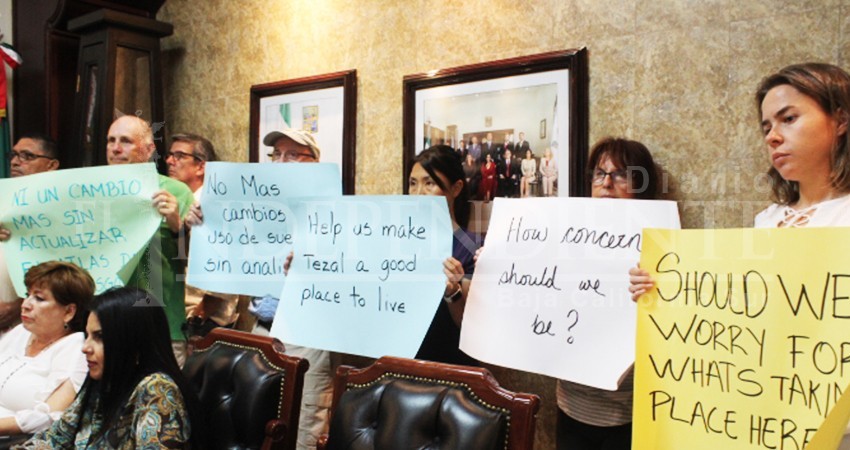 NI UN CAMBIO
MAS SIN
ACTUALIZAR
No Mas
cambios
uso de sue
sin anali
Help us make
Tezal a good
place to live
How concern
should we
be?
SHOULD WE
WORRY FOR
WHATS TAKIN
PLACE HERE
Diario
INDEPENDIENTE
Baja California Sur